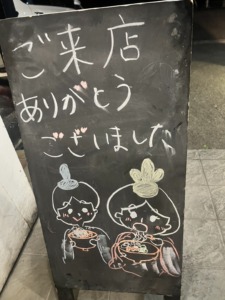 ご来店
ありがとう
ございました